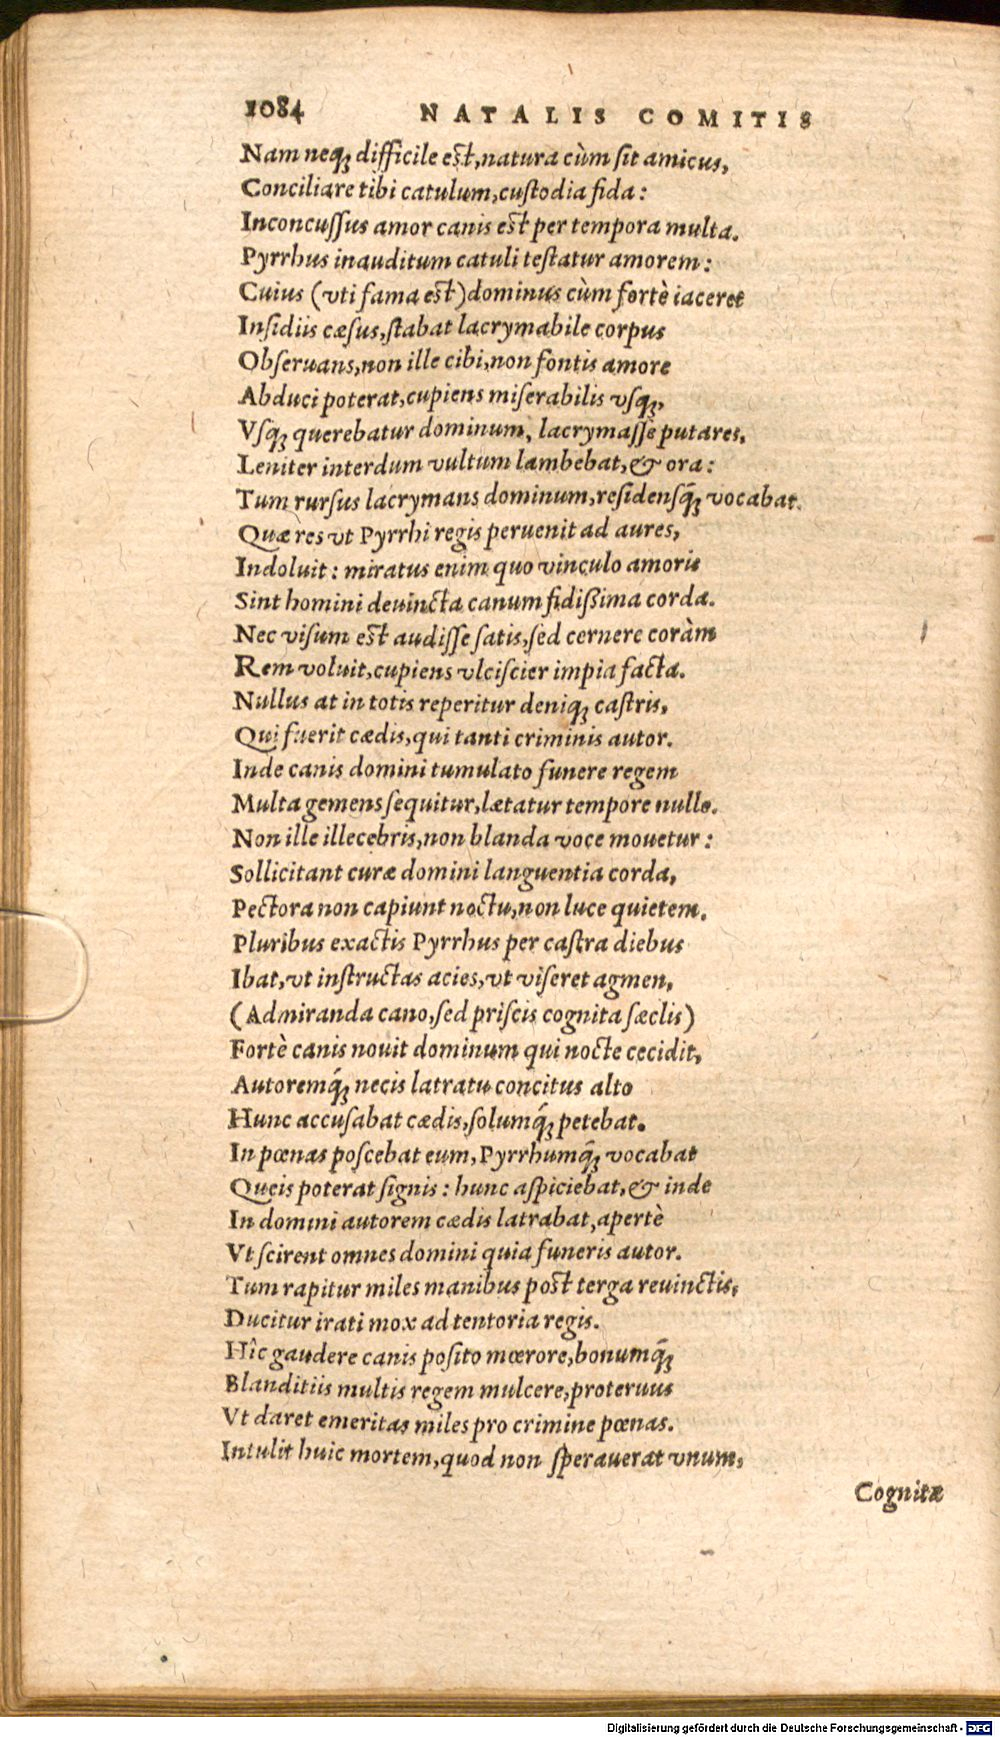 1084 NATALIS COMITIS
Nam neq; difficile est, natura cùm sit amicus,
Conciliare tibi catulum, custodia fida:
Inconcussus amor canis est per tempora multa.
Pyrrhus inauditum catuli testatur amorem:
Cuius (vti fama est) dominus cùm fortè iaceret
Insidiis cæsus, stabat lacrymabile corpus
Obseruans, non ille cibi, non fontis amore
Abduci poterat, cupiens miserabilis vsq;,
Vsq; querebatur dominum, lacrymasse putares,
Leniter interdum vultum lambebat, & ora:
Tum rursus lacrymans dominum, residensq́; vocabat.
Quæ res vt Pyrrhi regis peruenit ad aures,
Indoluit: miratus enim quo vinculo amoris
Sint homini deuincta canum fidißima corda.
Nec visum est audisse satis, sed cernere coràm
Rem voluit, cupiens vlciscier impia facta.
Nullus at in totis reperitur deniq; castris,
Qui fuerit cædis, qui tanti criminis autor.
Inde canis domini tumulato funere regem
Multa gemens sequitur, lætatur tempore nullo.
Non ille illecebris, non blanda voce mouetur:
Sollicitant curæ domini languentia corda,
Pectora non capiunt noctu, non luce quietem.
Pluribus exactis Pyrrhus per castra diebus
Ibat, vt instructas acies, vt viseret agmen,
(Admiranda cano, sed priscis cognita sæclis)
Fortè canis nouit dominum qui nocte cecidit,
Autoremq́; necis latratu concitus alto
Hunc accusabat cædis, solumq́; petebat.
In pœnas poscebat eum, Pyrrhumq́; vocabat
Queis poterat signis: hunc aspiciebat, & inde
In domini autorem cædis latrabat, apertè
Vt scirent omnes domini quia funeris autor.
Tum rapitur miles manibus post terga reuinctis,
Ducitur irati mox ad tentoria regis.
Hîc gaudere canis posito mœrore, bonumq́;
Blanditiis multis regem mulcere, proteruus
Vt daret emeritas miles pro crimine pœnas.
Intulit huic mortem, quod non sperauerat vnum,
Cognitæ
Digitalisierung gefördert durch die Deutsche Forschungsgemeinschaft - DFG